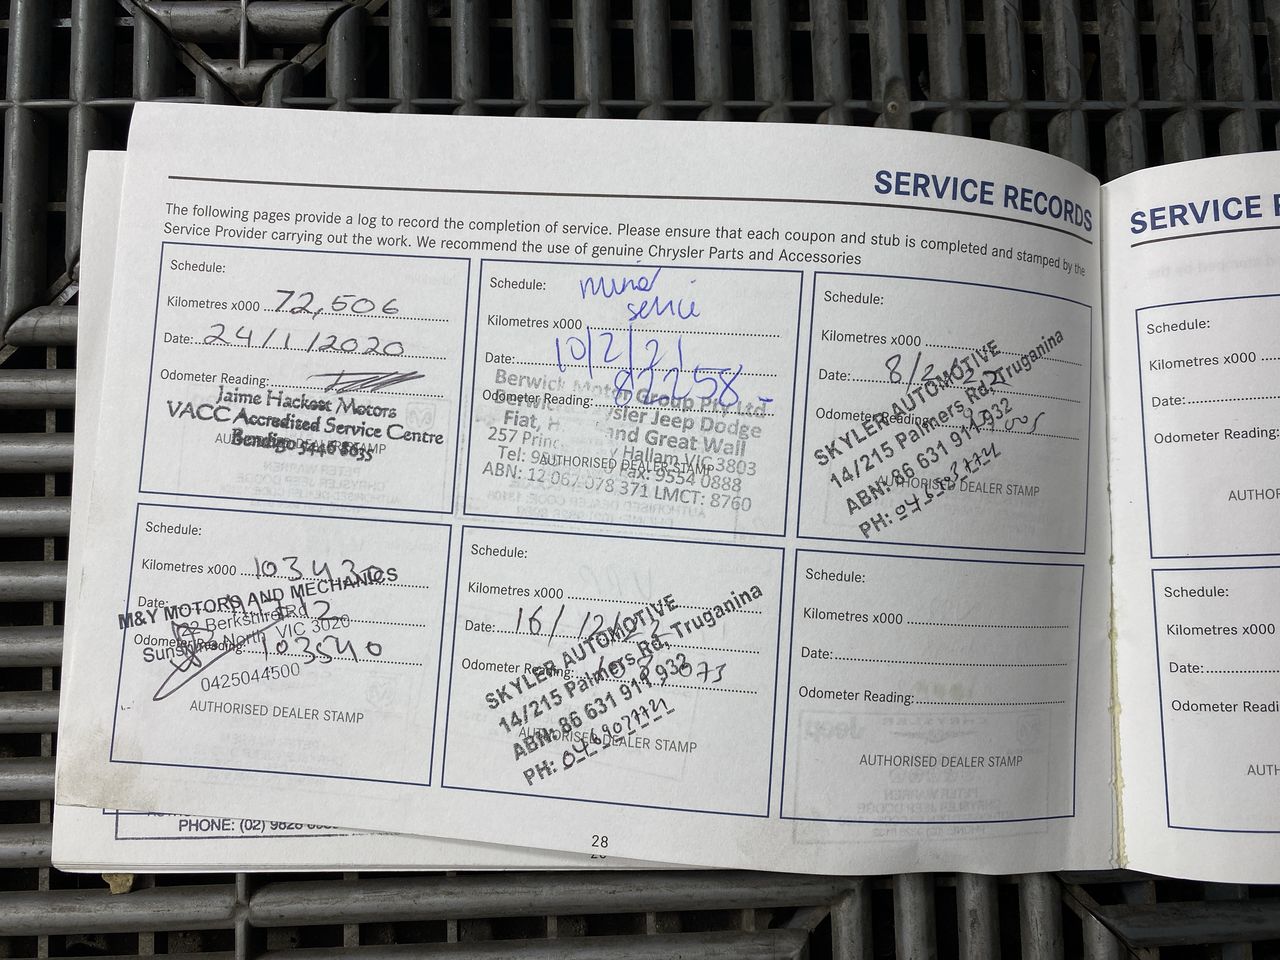 SERVICE RECORDS
The following pages provide a log to record the completion of service. Please ensure that each coupon and stub is completed and stamped by the
Service Provider carrying out the work. We recommend the use of genuine Chrysler Parts and Accessories
Schedule:
Kilometres x000 72,506
Date: 24/1/2020
Odometer Reading:
Jaime Hackett Motors
VACC Accredited Service Centre
Bendigo 5446 8035
AUTHORISED DEALER STAMP
Schedule: minor
service
Kilometres x000
Date: 10/2/21
Odometer Reading: 82258-
Berwick Motor Group Pty Ltd
Berwick Chrysler Jeep Dodge
Fiat, and Great Wall
257 Princ Hallam VIC 3803
Tel: Fax: 9554 0888
ABN: 12 067 078 371 LMCT: 8760
AUTHORISED DEALER STAMP
Schedule:
Kilometres x000
Date: 8/2
Odometer Reading:
SKYLER AUTOMOTIVE
14/215 Palmers Rd, Truganina
ABN: 86 631 911 932
PH:
AUTHORISED DEALER STAMP
Schedule:
Kilometres x000
Date:
Odometer Reading: 103540
M&Y MOTORS AND MECHANICS
Berkshire Rd
Sunshine North VIC 3020
0425044500
AUTHORISED DEALER STAMP
Schedule:
Kilometres x000
Date: 16/12/22
Odometer Reading:
SKYLER AUTOMOTIVE
14/215 Palmers Rd, Truganina
ABN: 86 631 911 932
PH:
AUTHORISED DEALER STAMP
Schedule:
Kilometres x000
Date:
Odometer Reading:
AUTHORISED DEALER STAMP
28
PHONE: (02) 9828
SERVICE
Schedule:
Kilometres x000
Date:
Odometer Reading:
Schedule:
Kilometres x000
Date: